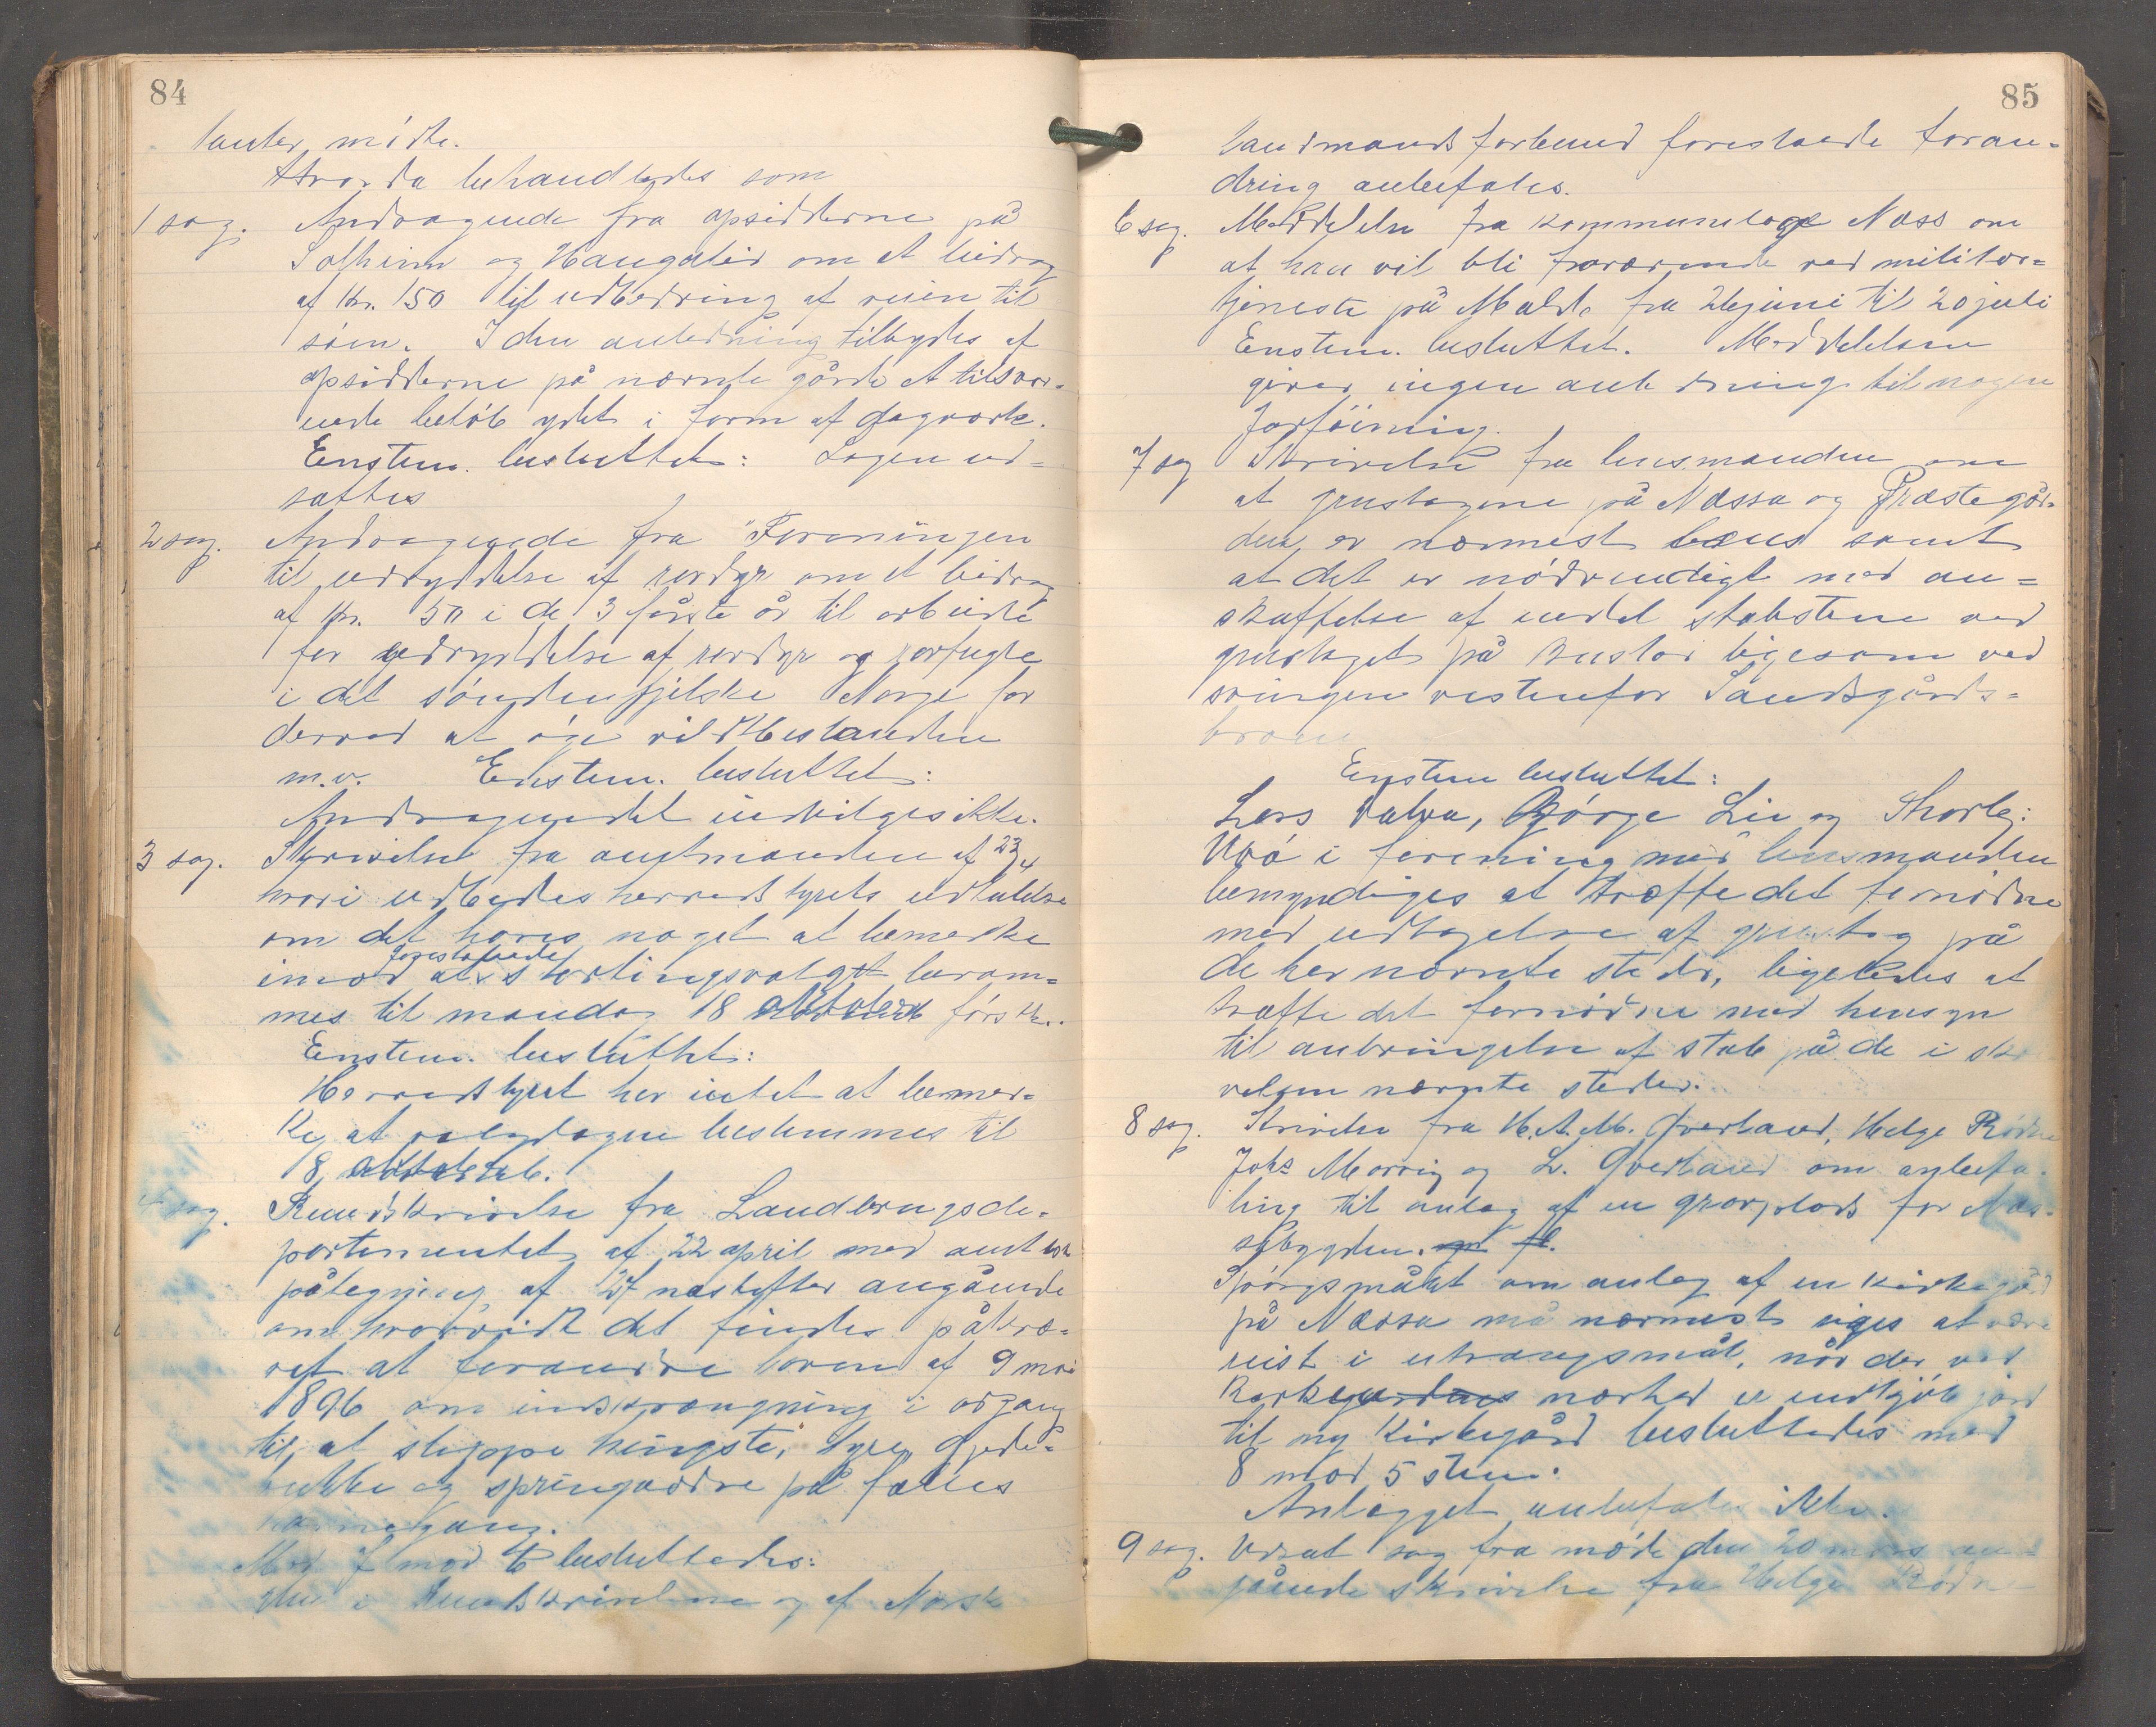 84
tanter mødte.
Hvorda behandledes som
1 sag. Andragende fra opsidderne på
Solheim og Haugalid om et bidrag
af Kr. 150 til udbedring af veien til
søm. I den anledning tilbydes af
opsidderne på nævnte gårde et tilsvar-
ende beløb ydet i form af dagværk.
Enstem. besluttet: Sagen ud-
sættes
2 sag. Andragende fra "Foreningen
til udryddelse af rovdyr om et bidrag
af Kr. 50 i de 3 første år til arbeide
for udryddelse af rovdyr og rovfugle
i det søndenfjelske Norge for
derved at øge vildtbestanden
m.v. Enstem. besluttet:
Andragendet indvilges ikke.
3 sag. Skrivelse fra amtmanden af 23/4
hvori udbedes herredstyrets udtalelse
om det haves noget at bemerke
imod at forestående stortingsvalget beram-
mes til mandag 18 oktober førstk.
Enstem. besluttet:
Herredstyret har intet at bemær-
ke at valgdagen bestemmes til
18 oktober.
4 sag. Rundskrivelse fra Landbrugsde-
partementet af 22 april med amtets
påtegning af 27 næstefter angående
om hvorvidt det findes påkræ-
vet at forandre loven af 9 mai
1896 om indskrænkning i adgang
til at slippe hingste, tyre, gjede-
bukke og springvædre på fælles
havnegang.
Med 7 mod 6 besluttedes:
Den i Rundskrivelsen og af Norsk
85
landmandsforbund foreslaaede foran-
dring anbefales.
6 sag. Meddelelse fra kommunelæge Næss om
at han vil bli fraværende ved militær-
tjeneste på Malde fra 26 juni til 20 juli
Enstem. besluttet. Meddelelsen
giver ingen anledning til nogen
forføining.
7 sag Skrivelse fra lensmanden om
at grustagene på Næssa og Præstegår-
den er nærmest læns samt
at det er nødvendigt med an-
skaffelse af endel stabstene ved
grustaget på ligesom ved
svingen vestenfor Sandsgårds-
broen
Enstem besluttet:
Lars Valva, Børge Lie og Thorlg:
Vrå i forening med lensmanden
bemyndiges at træffe det fornødne
med udtagelse af grustag på
de her nævnte steder, ligeledes at
træffe det fornødne med hensyn
til anbringelse af stab på de i skr
velsen nævnte steder.
8 sag. Skrivelse fra H. A. M. Qverland, Helge Rødne
Johs Morvig og L. Qverland om anbefa-
ling til anlæg af en gravplads for Næs-
sebygden.
Spørgsmålet om anlæg af en kirkegård
på Næssa må nærmest siges at være
reist i utrængsmål, når der ved
Kirke nærhed er indkjøb jord
til ny Kirkegård besluttedes med
8 mod 5 stem.
Anlægget anbefales ikke.
9 sag. Udsat sag fra møde den 20 mars an-
gående skrivelse fra Helge Rødn